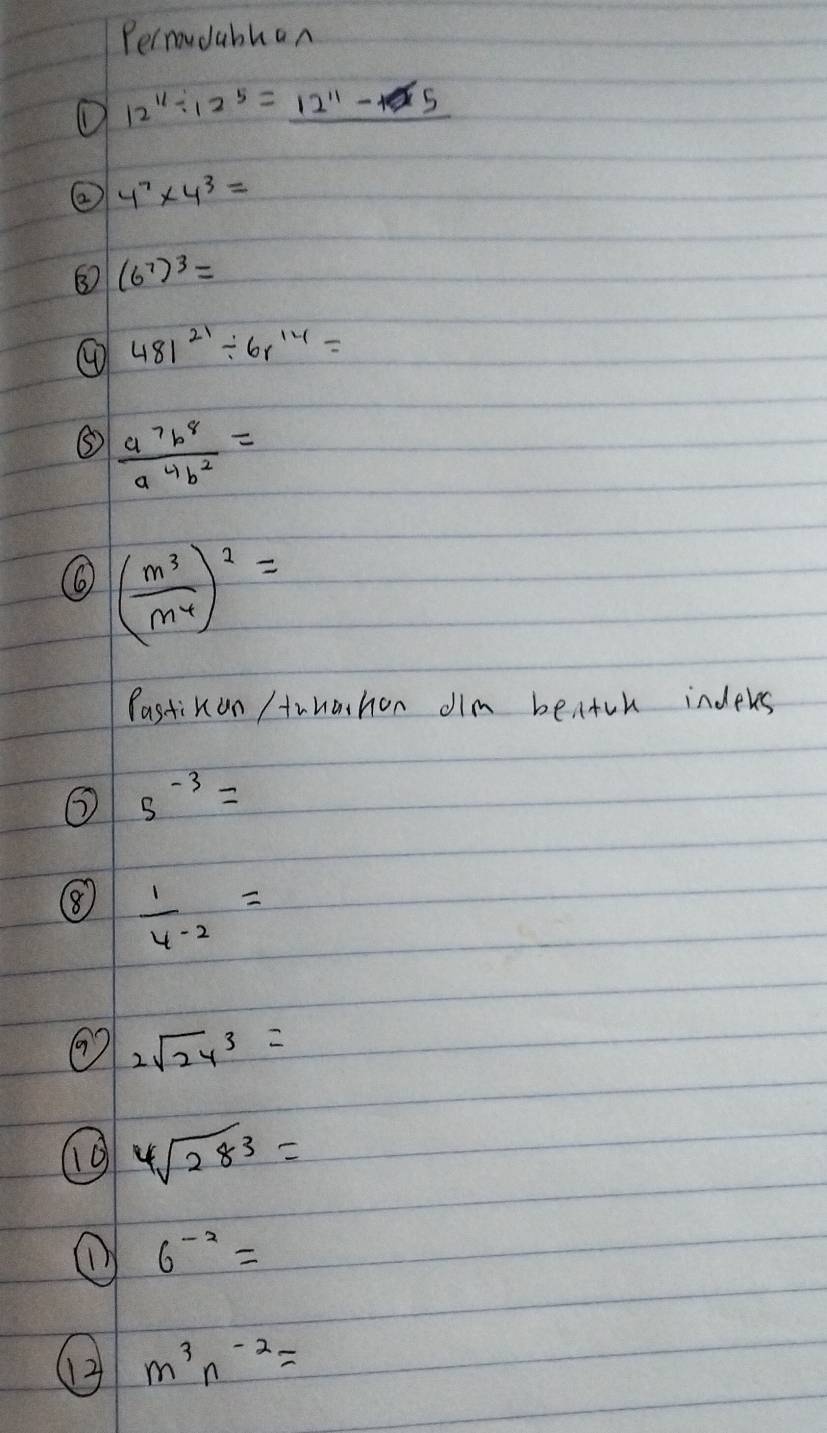 Permudahkan
① 12¹¹ ÷ 12⁵ = 12¹¹ - 5
② 4⁷ × 4³ =
③ (6⁷)³ =
④ 48r²¹ ÷ 6r¹⁴ =
⑤ a⁷b⁸ / a⁴b² =
⑥ (m³ / m⁴)² =
Pastikan / tukarkan dlm bentuk indeks
⑦ 5⁻³ =
⑧ 1 / 4⁻² =
⑨ ²√24³ =
⑩ ⁴√28³ =
⑪ 6⁻² =
⑫ m³n⁻² =